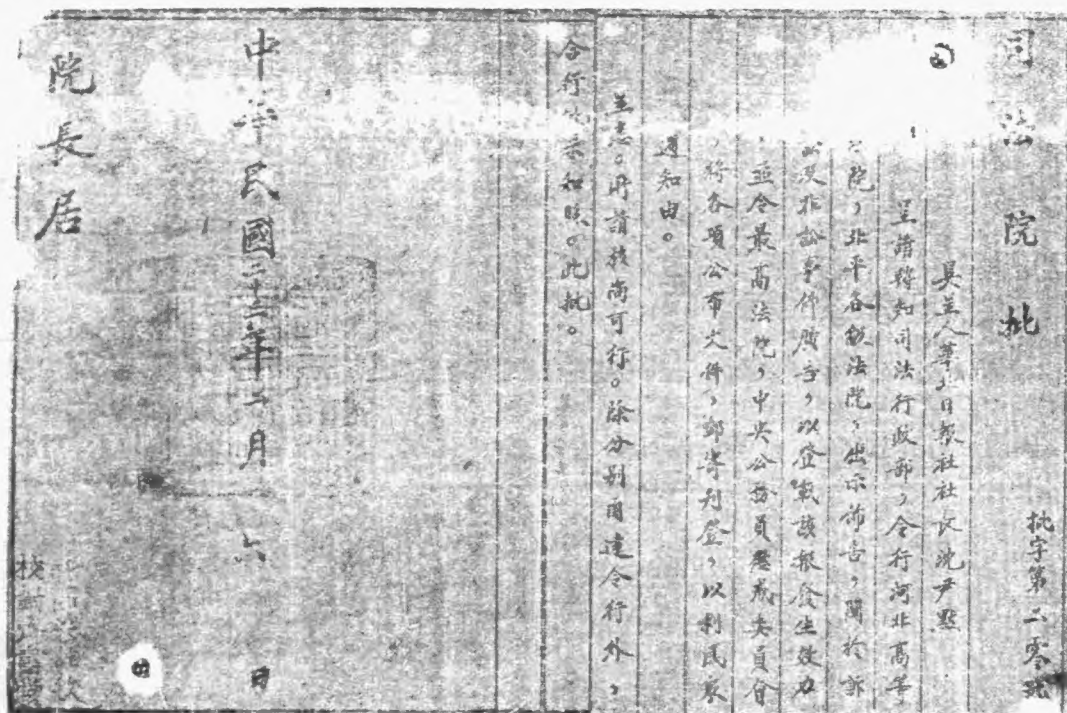 司法院批
批字第二零號
具呈人華北日報社社長沈尹默
呈請轉知司法行政部，令行河北高等
院，北平各級法院，出示布告，關於訴
及非訟事件廣告，以登載該報發生效力
，並令最高法院，中央公務員懲戒委員會
，將各項公布文件，郵寄刊登，以利民眾
週知由。
呈悉。所請核尚可行。除分別函達令行外，
合行批示知照。此批。
中華民國二十二年二月六日
院長居
校對